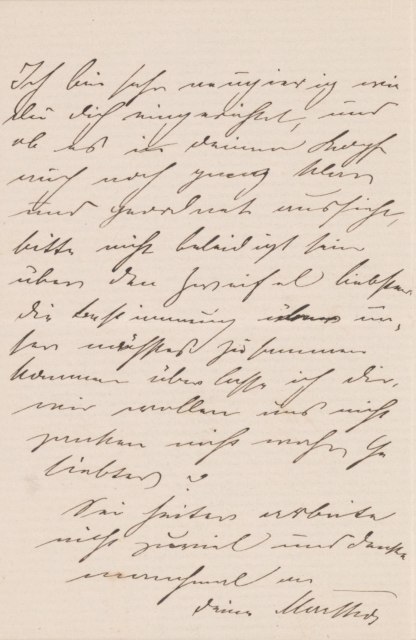 Ich bin sehr neugierig wie
du dich eingerichtet, und
ob es in deinem Kopf
auch noch ganz klar
und geordnet aussieht,
bitte nicht beleidigt sein
über den Zweifel liebster
die Bestimmung über un-
ser nächstes zusammen
kommen überlasse ich dir,
wir wollen uns nicht
zanken nicht wahr Ge
liebter?
Sei heiter arbeite
nicht zuviel und denke
manchmal an
deine Martha